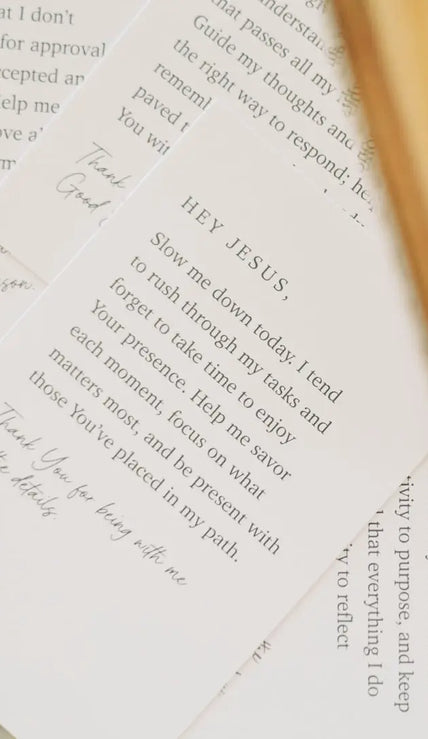 at I don't
for approval
Help me
Thank
Good
that passes all my
Guide my thoughts and
the right way to respond;
paved
You
HEY JESUS,
Slow me down today. I tend
to rush through my tasks and
forget to take time to enjoy
Your presence. Help me savor
each moment, focus on what
matters most, and be present with
those You've placed in my path.
Thank You for being with me
details
to purpose, and keep
that everything I do
to reflect